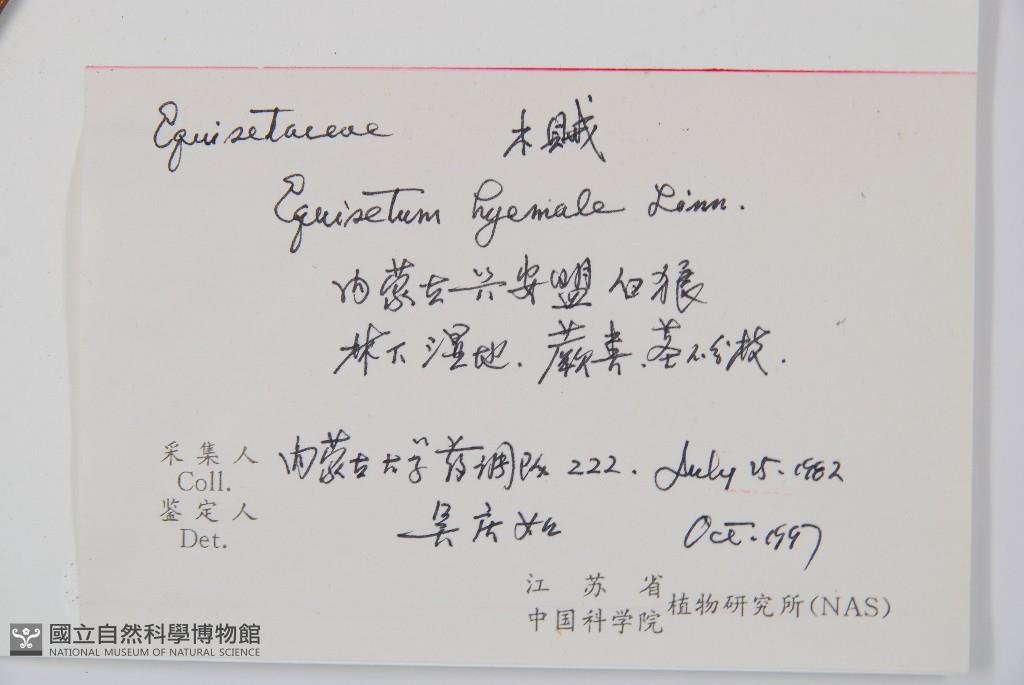 Equisetaceae 木賊
Equisetum hyemale Linn.
内蒙古兴安盟 白狼
林下湿地. 茎不分枝.
采集人 内蒙古大学药调队 222. July 25. 1982
Coll.
鉴定人 吴庆如 Oct. 1997
Det.
江苏省
中国科学院植物研究所(NAS)
國立自然科學博物館
NATIONAL MUSEUM OF NATURAL SCIENCE